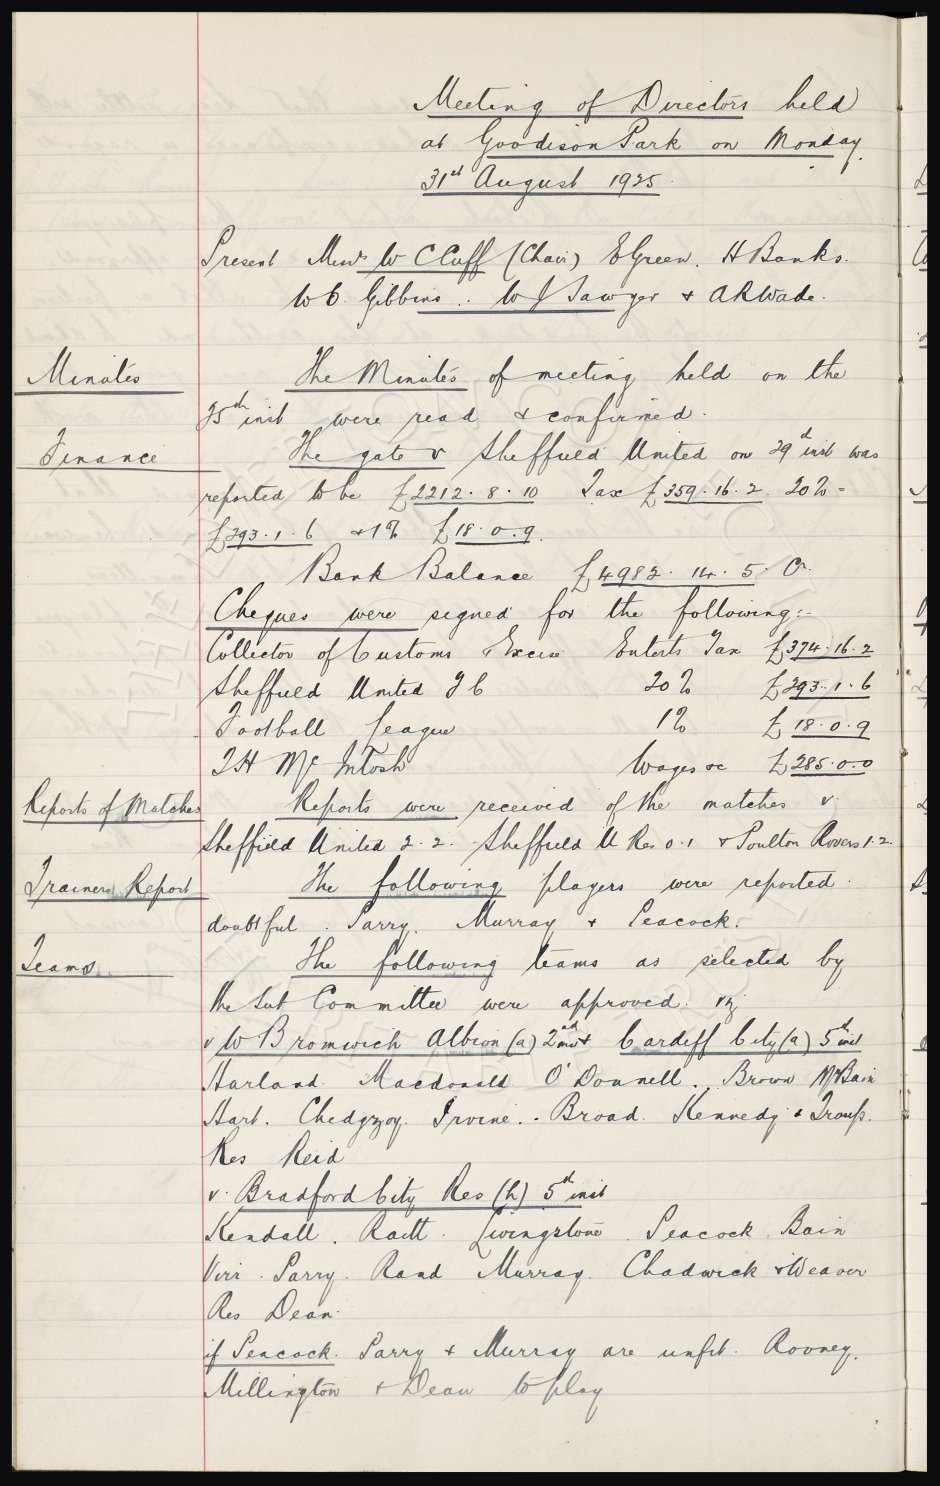 Meeting of Directors held
at Goodison Park on Monday
31st August 1925.
Present Messrs W C Cuff (Chair) E Green. H Banks.
W C. Gibbins.. W J Sawyer + A R Wade.
Minutes The Minutes of meeting held on the
25th inst were read & confirmed.
Finance The gate v Sheffield United on 29th inst was
reported to be £2212.8.10 Tax £359.16.2. 20% =
£293.1.6 & 1% £18.0.9.
Bank Balance £4982.14.5. Cr.
Cheques were signed for the following:-
Collector of Customs & Excise Enterts Tax £374.16.2
Sheffield United F C 20% £293.1.6
Football League 1% £18.0.9
T H McIntosh Wages &c £285.0.0
Reports of Matches Reports were received of the matches v.
Sheffield United 2.2. Sheffield U Res 0.1 & Poulton Rovers 1.2.
Trainers Report The following players were reported
doubtful. Parry. Murray & Peacock.
Teams The following teams as selected by
the Sub Committee were approved. viz
v W Bromwich Albion (a) 2nd inst & Cardiff City (a) 5th inst
Harland. Macdonald O'Donnell. Brown McBain
Hart. Chedgzoy. Irvine.. Broad. Kennedy & Troup.
Res Reid
v. Bradford City Res (h) 5th inst
Kendall. Raitt. Livingstone. Peacock. Bain
Virr. Parry. Rand Murray. Chadwick & Weaver
Res Dean.
if Peacock. Parry + Murray are unfit. Rooney.
Millington + Dean to play